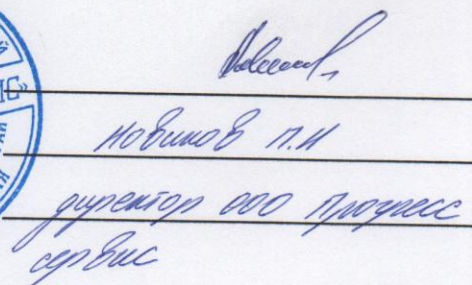 ИС»
Новиков П.И
директор ооо прогресс
сервис